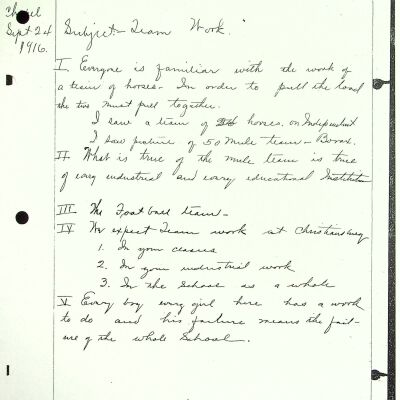 Chapel
Sept 24
1916.
Subject:- Team Work.
I Everyone is familiar with the work of
a team of horses - In order to pull the load
the two must pull together.
I saw a team of horses. on Independent
I saw picture of 50 Mule team - Borax.
II What is true of the mule team is true
of every industrial and every educational Institution
III The Foot ball team -
IV We expect Team work at Christiansburg
1. In your classes
2. In your industrial work
3. In the School as a whole
V Every boy every girl here has a work
to do and his failure means the fail-
ure of the whole School.